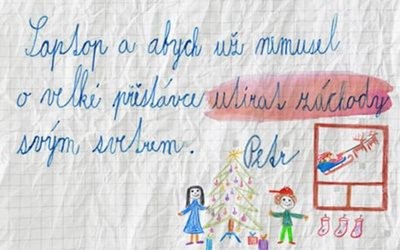 Laptop a abych už nemusel
o velké přestávce utírat záchody
svým svetrem. Petr